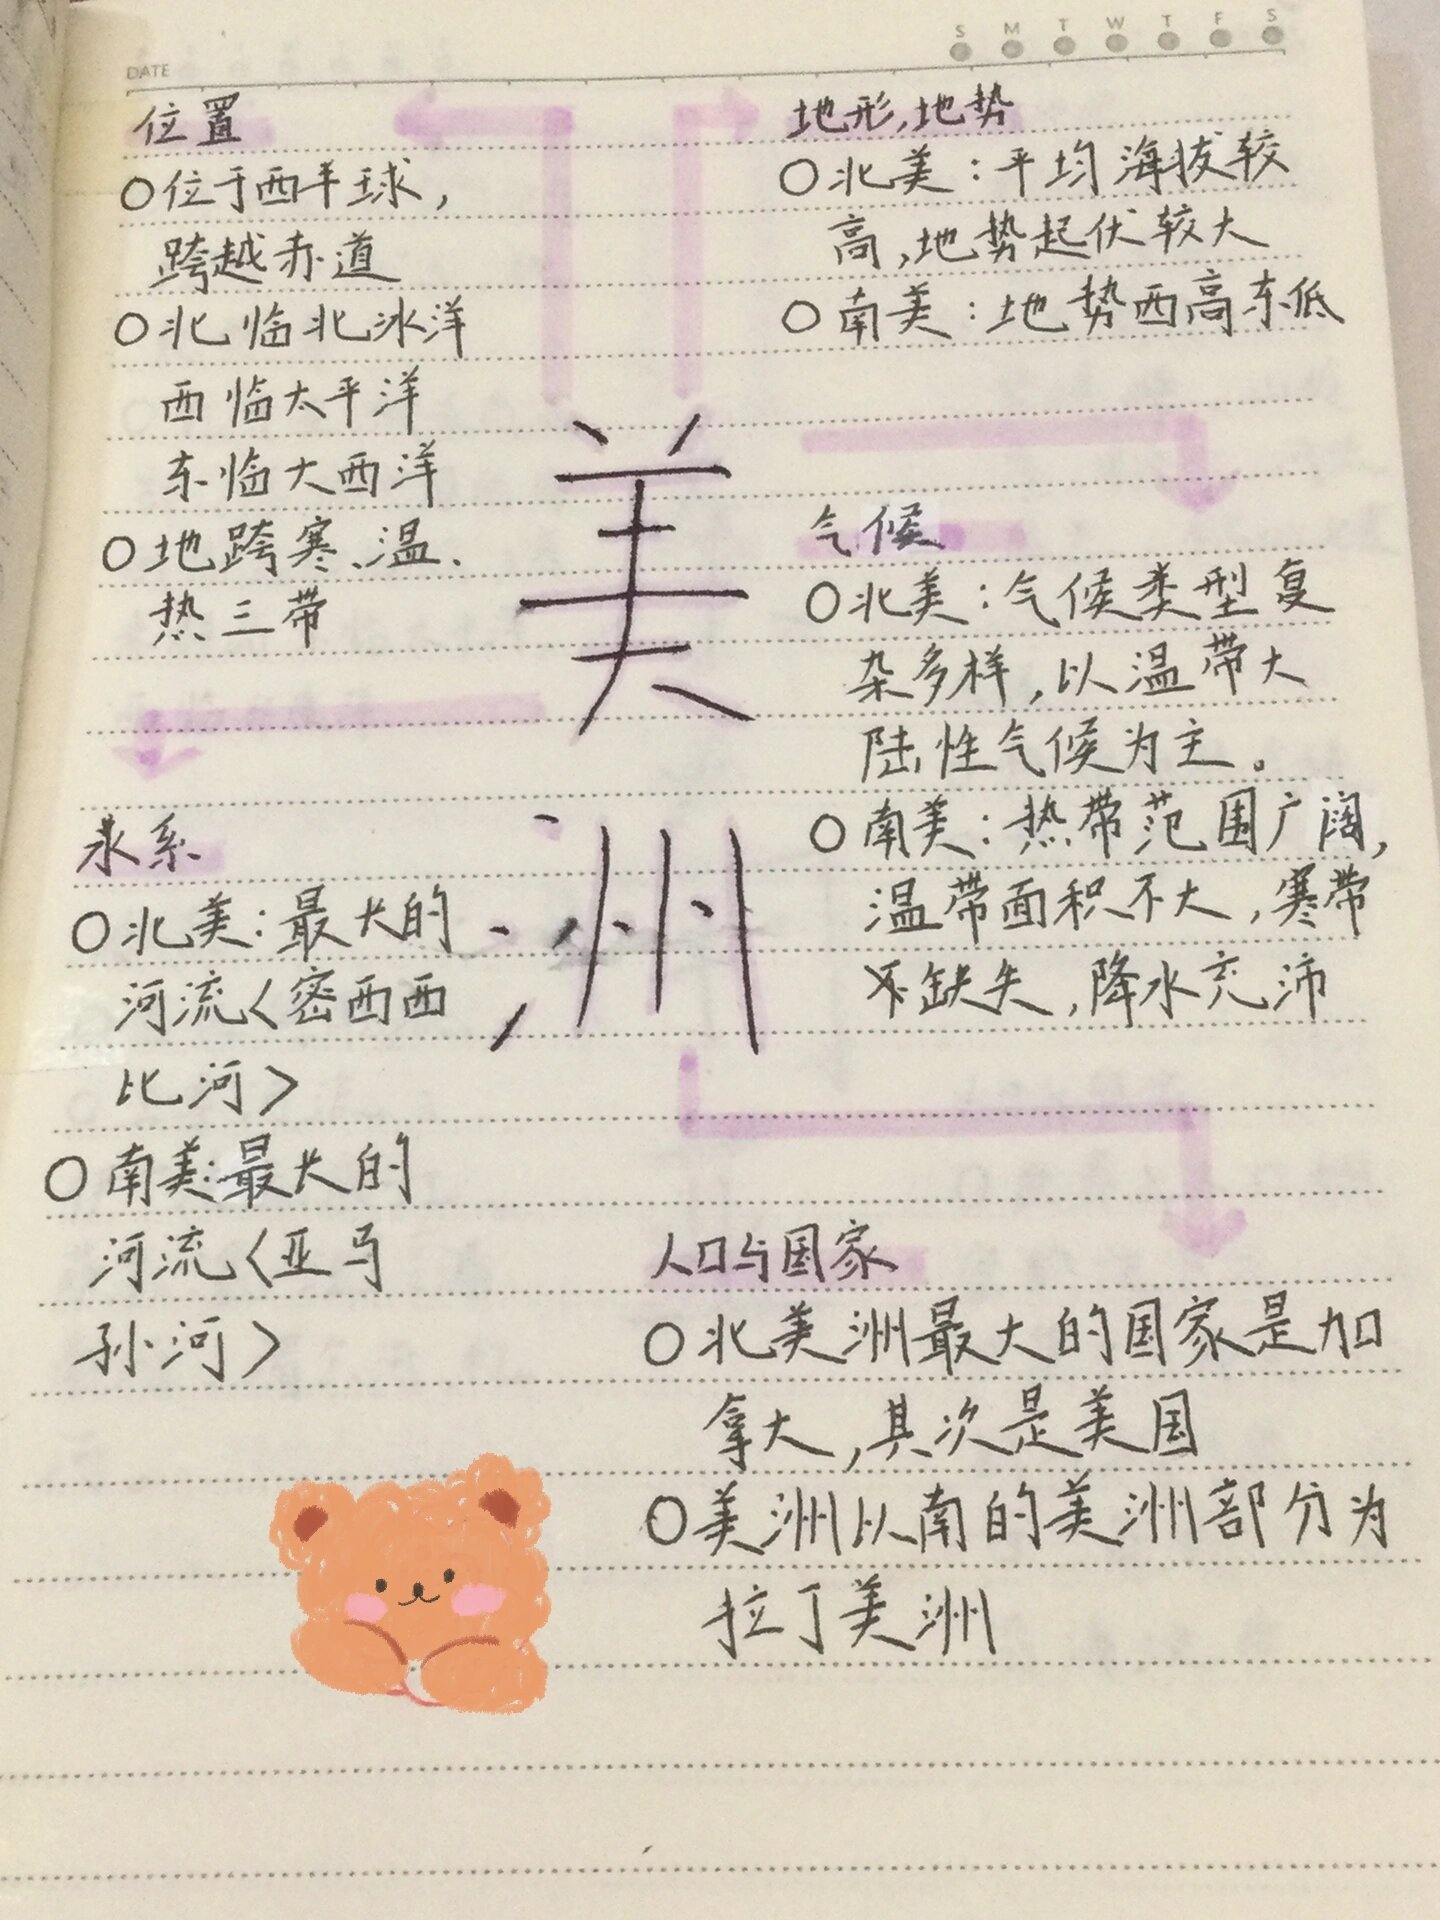 DATE
S M T W T F S
位置
○位于西半球，
跨越赤道
○北临北冰洋
西临太平洋
东临大西洋
○地跨寒、温、
热三带
地形,地势
○北美:平均海拔较
高,地势起伏较大
○南美:地势西高东低
美
洲
气候
○北美:气候类型复
杂多样,以温带大
陆性气候为主。
○南美:热带范围广阔,
温带面积不大,寒带
不缺失,降水充沛
水系
○北美:最大的
河流<密西西
比河>
○南美:最大的
河流<亚马
孙河>
人口与国家
○北美洲最大的国家是加
拿大,其次是美国
○美洲以南的美洲部分为
拉丁美洲